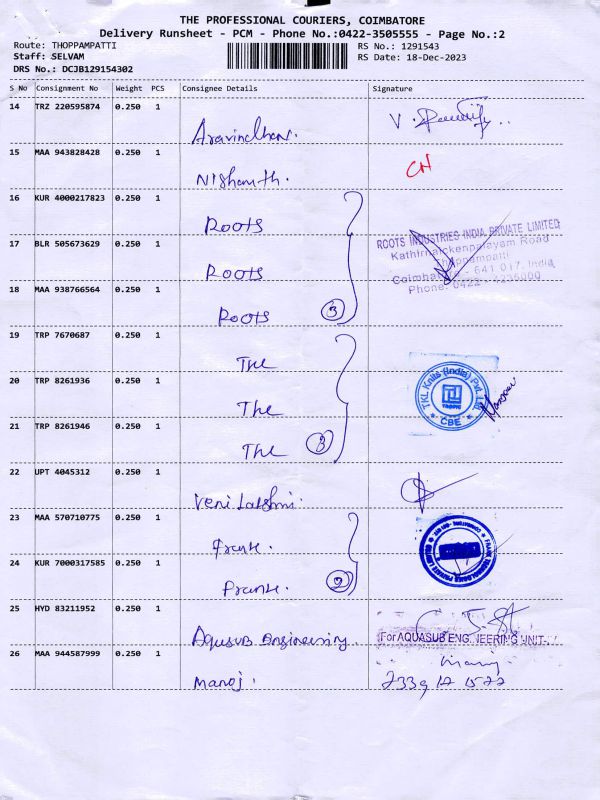 THE PROFESSIONAL COURIERS, COIMBATORE
Delivery Runsheet - PCM - Phone No.:0422-3505555 - Page No.:2
Route: THOPPAMPATTI RS No.: 1291543
Staff: SELVAM RS Date: 18-Dec-2023
DRS No.: DCJB129154302
S No Consignment No Weight PCS Consignee Details Signature
14 TRZ 220595874 0.250 1
Aravindhan.
15 MAA 943828428 0.250 1 CN
Nishanth.
16 KUR 4000217823 0.250 1
Roots
ROOTS INDUSTRIES INDIA PRIVATE LIMITED
17 BLR 505673629 0.250 1 Kathirnaickenpalayam Road
Thoppampatti
Roots Coimbatore - 641 017, India
18 MAA 938766564 0.250 1 Phone: 0422 - 4236000
Roots 3
19 TRP 7670687 0.250 1
The
20 TRP 8261936 0.250 1 TKL Knits (India) Pvt. Ltd.
The CBE
21 TRP 8261946 0.250 1
The 3
22 UPT 4045312 0.250 1
Veni Lakshmi.
23 MAA 570710775 0.250 1
Frank.
24 KUR 7000317585 0.250 1
Frank. 2
25 HYD 83211952 0.250 1
Aqusub Engineering. For AQUASUB ENGINEERING UNIT-
26 MAA 944587999 0.250 1 Manoj
Manoj.